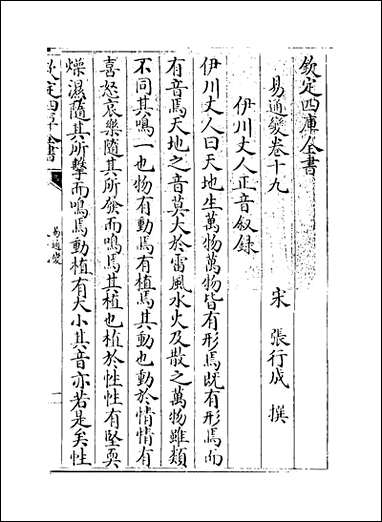 欽定四庫全書
易通變卷十九
宋 張行成 撰
伊川丈人正音叙錄
伊川丈人曰天地生萬物萬物皆有形焉既有形焉而
有音焉天地之音莫大於雷風水火及散之萬物雖類
不同其鳴一也物有動焉有植焉其動也動於情情有
喜怒哀樂隨其所發而鳴焉其植也植於性性有堅耎
燥濕隨其所擊而鳴焉動植有大小其音亦若是矣性
欽定四庫全書
易通變
一